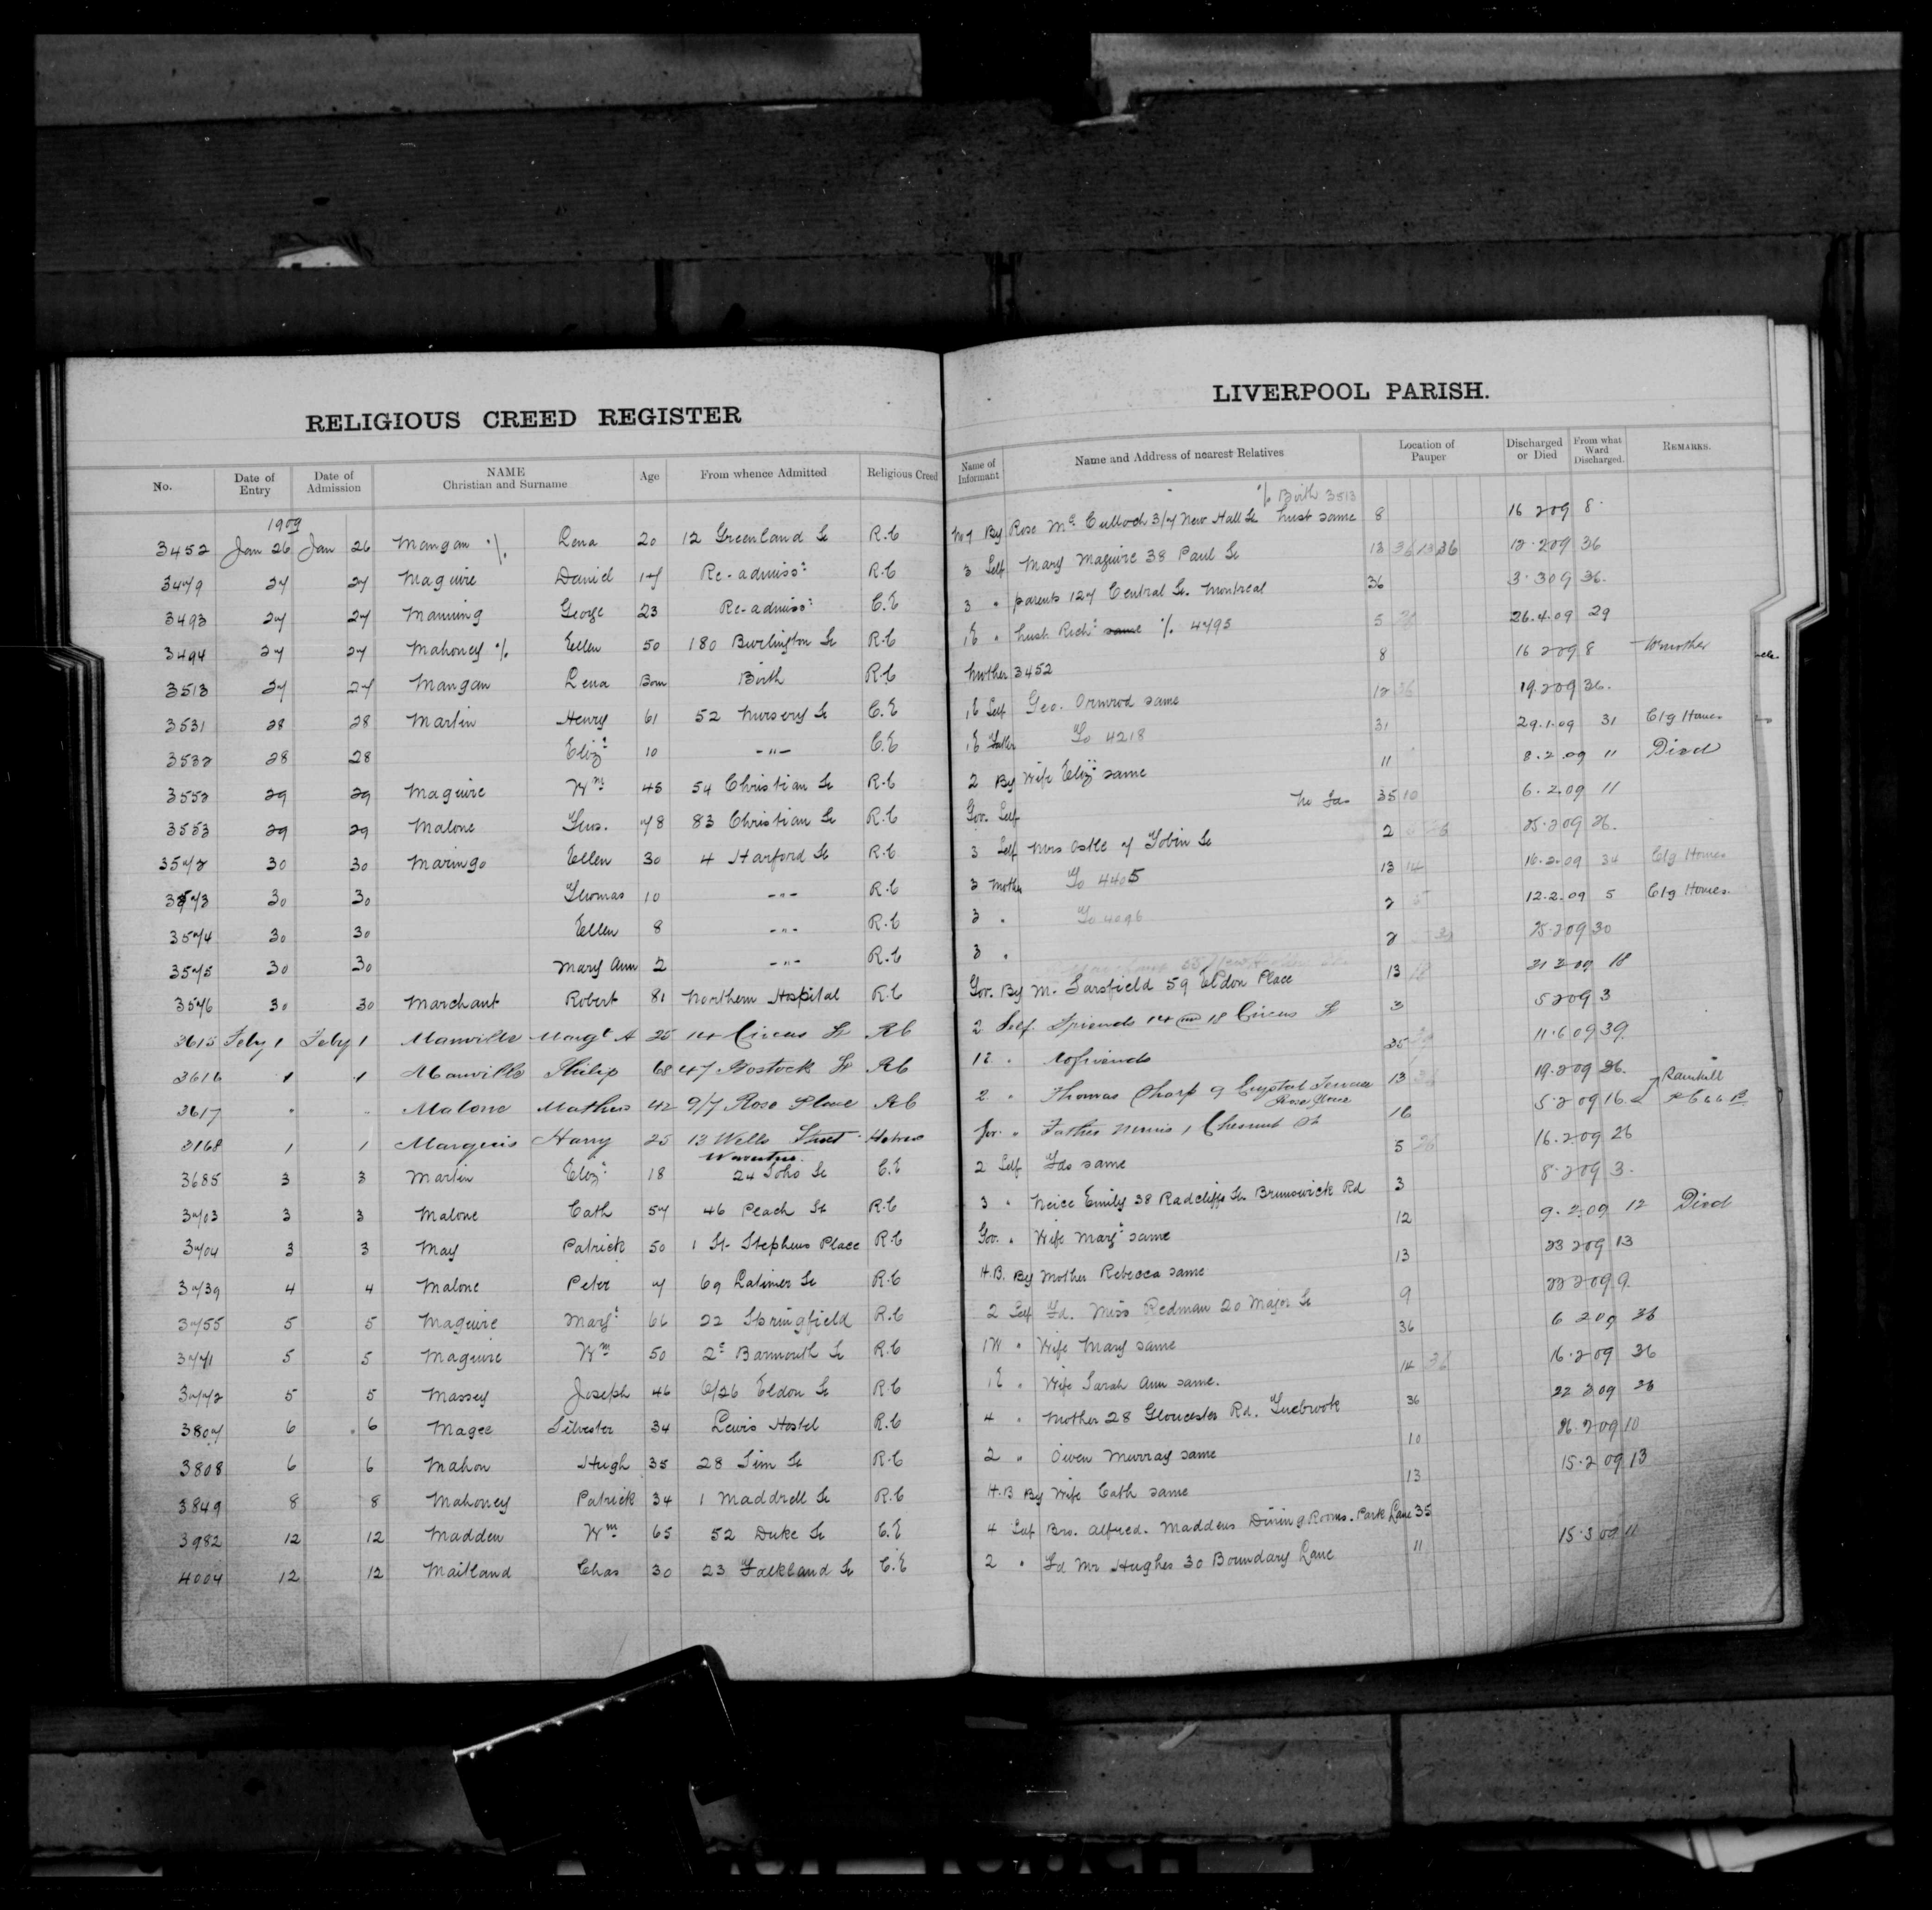 RELIGIOUS CREED REGISTER
No. Date of Entry Date of Admission NAME Christian and Surname Age From whence Admitted Religious Creed
1909
3452 Jan 26 Jan 26 Mangan % Lena 20 12 Greenland St R.C
3479 27 27 Maguire Daniel 17 Re-admisso: R.C
3493 27 27 Manning George 23 Re-admiso: C.E
3494 27 27 Mahoney % Ellen 50 180 Burlington St R.C
3513 27 27 Mangan Lena Born Birth R.C
3531 28 28 Martin Henry 61 52 Nursery St C.E
3532 28 28 Eliz: 10 -"- C.E
3552 29 29 Maguire Wm 45 54 Christian St R.C
3553 29 29 Malone Thos. 78 83 Christian St R.C
3572 30 30 Maringo Ellen 30 4 Harford St R.C
3573 30 30 Thomas 10 -"- R.C
3574 30 30 Ellen 8 -"- R.C
3575 30 30 Mary Ann 2 -"- R.C
3576 30 30 Marchant Robert 81 Northern Hospital R.C
3615 Feby 1 Feby 1 Manville Margt A 25 14 Circus St RC
3616 1 1 Manville Philip 68 47 Rostock St RC
3617 " Malone Mathew 42 9/7 Rose Place RC
3168 1 1 Marquis Harry 25 13 Wells Street Hebrew
3685 3 3 Martin Eliz: 18 24 Soho St C.E
3703 3 3 Malone Cath 57 46 Peach St R.C
3704 3 3 May Patrick 50 1 St Stephens Place R.C
3739 4 4 Malone Peter 7 69 Latimer St R.C
3755 5 5 Maguire Marg: 66 22 Springfield R.C
3771 5 5 Maguire Wm 50 2c Barmouth St R.C
3772 5 5 Massey Joseph 46 6/26 Eldon St R.C
3807 6 6 Magee Silvester 34 Lewis Hostel R.C
3808 6 6 Mahon Hugh 35 28 Sim St R.C
3849 8 8 Mahoney Patrick 34 1 Maddrell St R.C
3982 12 12 Madden Wm 65 52 Duke St C.E
4004 12 12 Maitland Chas 30 23 Falkland St C.E
LIVERPOOL PARISH.
Name of Informant Name and Address of nearest Relatives Location of Pauper Discharged or Died From what Ward Discharged. REMARKS.
% Birth 3513
By Rose Mc Culloch 3/7 New Hall St husb same 8 16 2 09 8
3 Self Mary Maguire 38 Paul St 12 36 13 36 12.2 09 36
3 " parents 127 Central St. Montreal 36 3.3 09 36.
1E " husb Rich: same % 4795 5 26.4.09 29
Mother 3452 8 16 2 09 8
1E Self Geo. Ormrod same 12 36 19.2 09 36.
1E Father To 4218 31 29.1.09 31 C/g Homes
2 By Wife Eliz: same 11 8.2.09 11 Died
Gov. Self No Fds 35 10 6.2.09 11
3 Self Mrs Astle 7 Tobin St 2 25.2 09 26.
3 Mother To 4405 13 14 16.2.09 34 C/g Homes
3 " To 4096 2 5 12.2.09 5 C/g Homes.
3 " 2 25.2 09 30
Gov. By M. Sarsfield 59 Eldon Place 13 18 31 3 09 18
2 Self Friends 14 18 Circus St 3 5 2 09 3
12 " No friends 35 11.6 09 39
2 " Thomas Sharp 9 Crystal Terrace Rose Place 13 19.2 09 36. Rainhill
Gov. " Father Morris 1 Chesnut St 16 5.2 09 16.
2 Self Fds same 5 26 16.2 09 26
3 " Neice Emily 38 Radcliffe St. Brunswick Rd 3 8.2 09 3.
Gov. " Wife Mary: same 12 9.2.09 12 Died
H.B. By Mother Rebecca same 13 23 2 09 13
2 Self Fd. Miss Redman 20 Major St 9 22 2 09 9
1W " Wife Mary same 36 6 2 09 36
1E " Wife Sarah Ann same. 14 36 16.2 09 36
4 " Mother 28 Gloucester Rd. Tuebrook 36 22 2 09 26
2 " Owen Murray same 10 26.2 09 10
H.B By Wife Cath same 13 15.2 09 13
4 Self Bro. Alfred. Maddens Dining Rooms. Park Lane 35
2 " Fd Mr Hughes 30 Boundary Lane 11 15.3 09 11